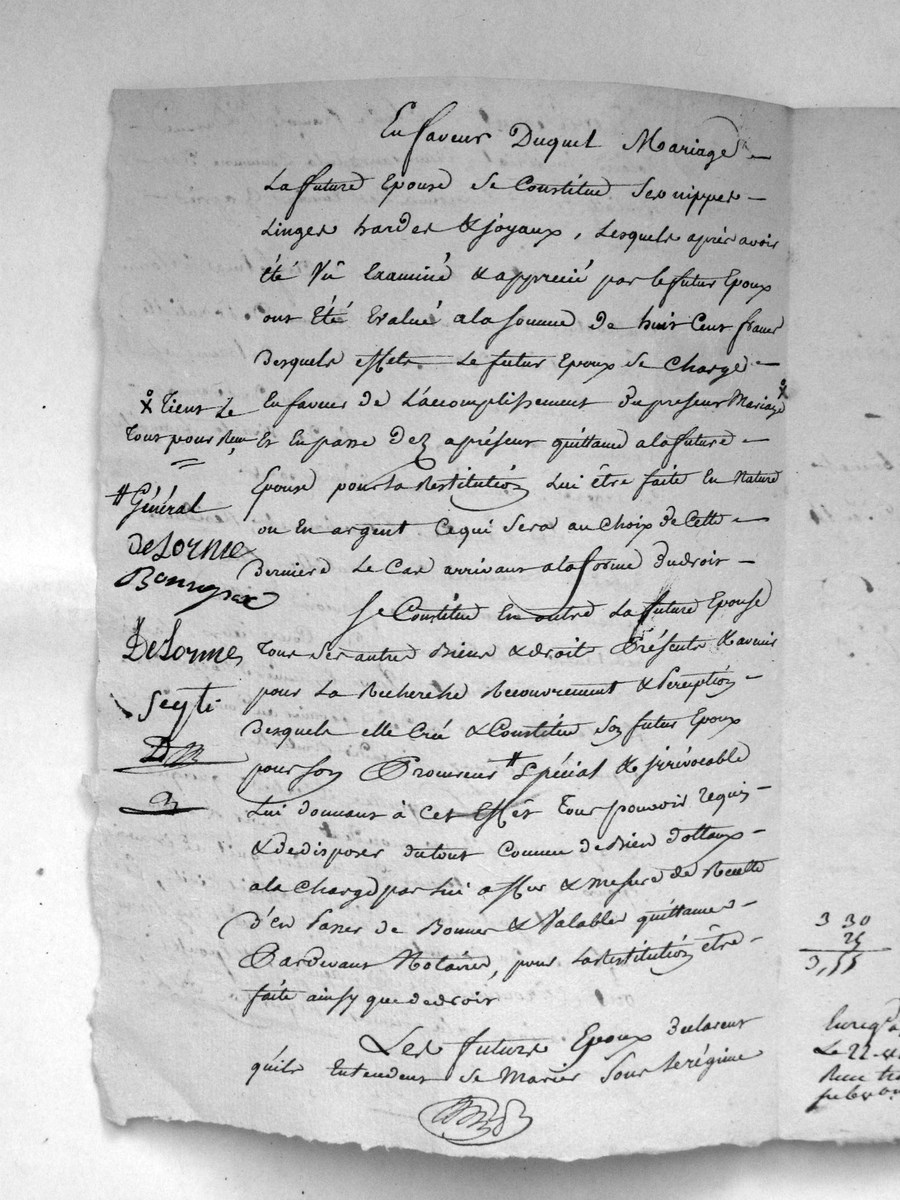 En faveur Duquel Mariage
La future Epouse se Constitue ses nippes
Linges hardes & joyaux, Lesquels aprés avoir
été Vû Examiné & apprecié par le futur Epoux
ont Eté Evalué ala somme de huit Cent francs
Desquels effets Le futur Epoux se Charge
En faveur de L'accomplissement du present Mariage
Et En passe dez aprésent quittance ala future
Epouse pour La Restitution Lui être faite En Nature
ou En argent Cequi sera au Choix de Cette
Derniere Le Cas arrivant ala forme du droit
Se Constitue En outre La future Epouse
Tous ses autres Biens & droit Présents & avenir
pour La Recherche Recouvrement & perception
Desquels elle Créé & Constitue son futur Epoux
pour son Procureur # Spécial & irrévocable
Lui donnant à Cet Effet Tous pouvoir requis
& de disposer du tout Comme de Bien dottaux
ala Charge par Lui a & mesure de Recette
d'En passer de Bonnes & Valables quittances
Pardevant Notaires, pour La restitution être
faite ainsy que de droit
Les futurs Epoux declarent
qu'ils Entendent se Marier sous Le régime
Tient Le
Tout pour
# Général
DeLorme
DeLorme
Seyti
3 30
25
3,55
Le 22